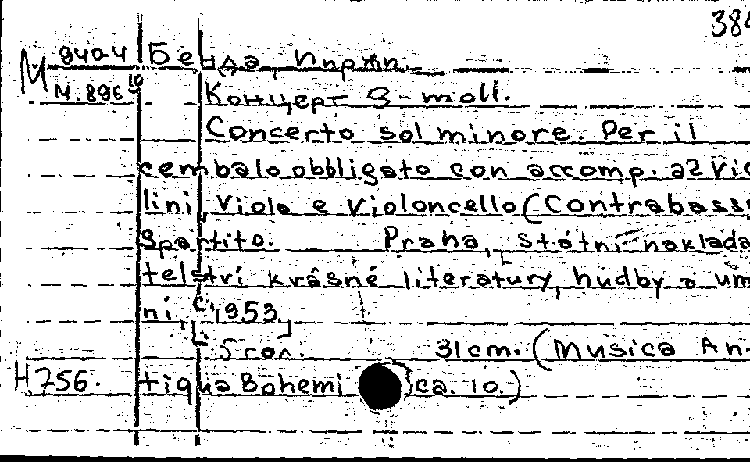 386
M 9404 Бенда, Ииржи.
М.896 Концерт g-moll.
Concerto sol minore. Per il
cembalo obbligato con accomp. a 2 vio
lini, viola e violoncello (contrabass
Spartito. Praha, Státní naklada
telství krásné literatury, hudby a um
ní, 1953
31 cm. (Musica An-
H756. tiqua Bohemica. 10.)